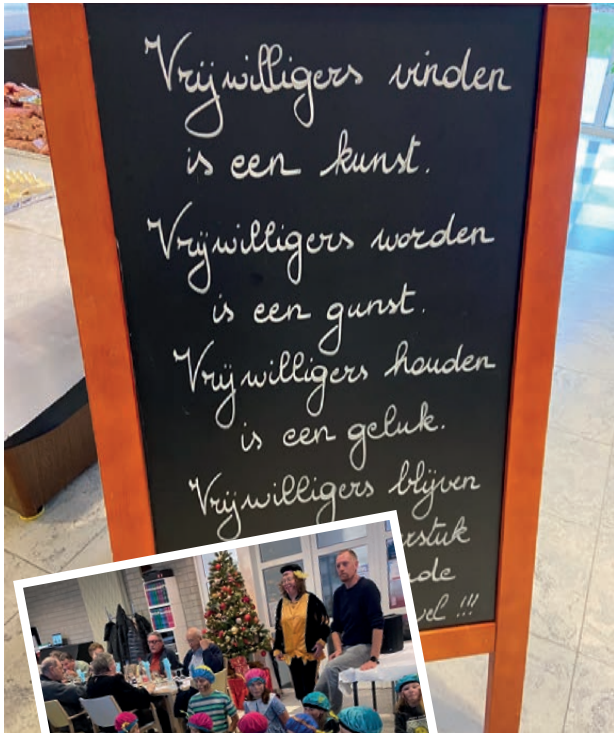 Vrijwilligers vinden
is een kunst.
Vrijwilligers worden
is een gunst.
Vrijwilligers houden
is een geluk.
Vrijwilligers blijven